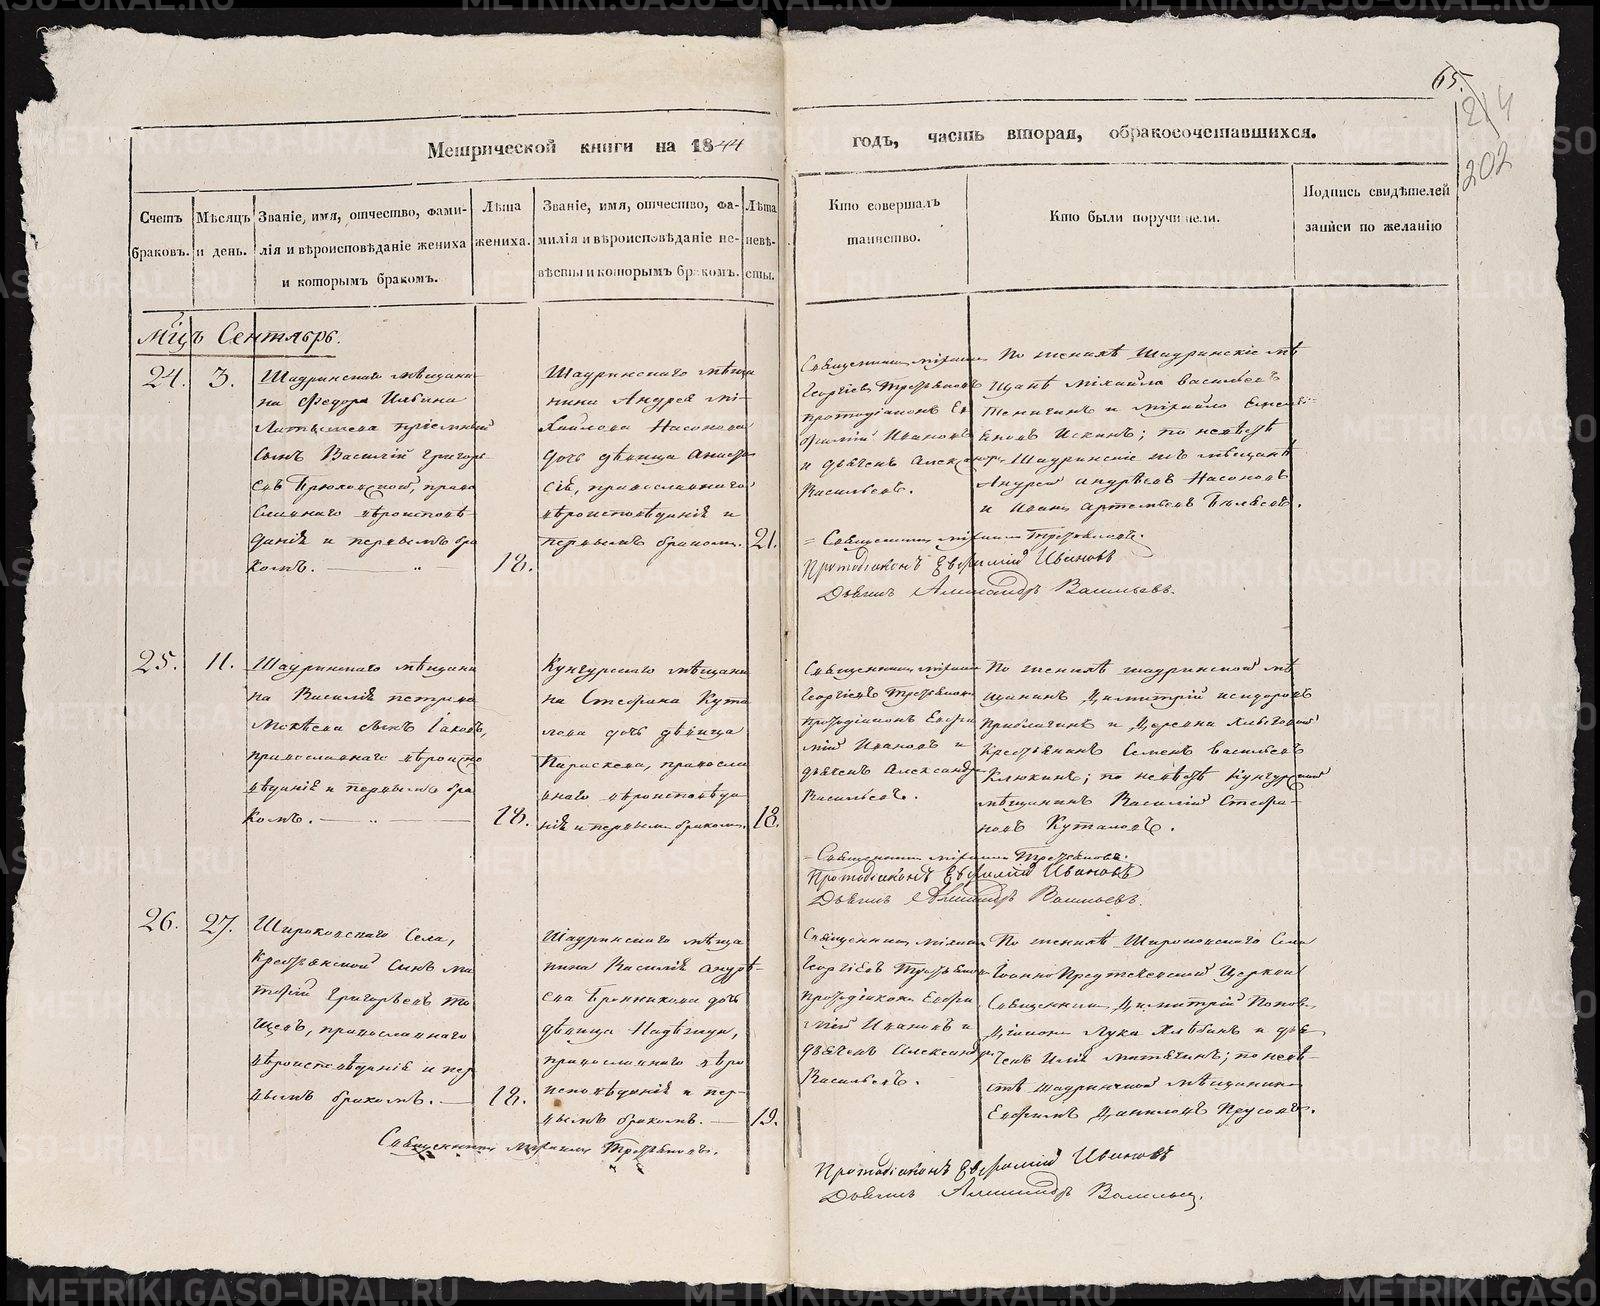 65.
214
202
Метрической книги на 1844
годъ, часть вторая, обракосочетавшихся.
Счетъ браковъ.
Мѣсяцъ и день.
Званіе, имя, отчество, фами-
лія и вѣроисповѣданіе жениха
и которымъ бракомъ.
Лѣта
жениха.
Званіе, имя, отчество, фа-
милія и вѣроисповѣданіе не-
вѣсты и которымъ бракомъ.
Лѣта
невѣ-
сты.
Кто совершалъ
таинство.
Кто были поручители.
Подпись свидѣтелей
записи по желанію
Мцъ Сентябрь.
24.
3.
Шадринскаго мѣщани-
на Федора Ильина
Латышева пріемный
сынъ Василій Григорь
евъ Брюховской, право
славнаго вѣроисповѣ
данія и первымъ бра
комъ.
18.
Шадринскаго мѣща
нина Андрея Ми-
хайлова Насонова
дочь дѣвица Анисі
православнаго
вѣроисповѣданія и
первымъ бракомъ.
21.
Священникъ Михаилъ
Георгіевъ Третьяковъ
протодіаконъ Ев
фимій Ивановъ
и дьячекъ Александръ
Васильевъ.
По женихѣ Шадринскіе мѣ
щане Михайла Васильевъ
и Михайло
по невѣстѣ
Шадринскіе жъ мѣщане
Андрей Андрѣевъ Насоновъ
и Иванъ Артемьевъ Бѣляевъ.
Священникъ Михаилъ Третьяковъ.
Протодіаконъ Евфимій Ивановъ
Дьячекъ Александръ Васильевъ.
25.
11.
Шадринскаго мѣщани
на Василія Петрова
Мокѣева сынъ Іаковъ,
православнаго вѣроиспо
вѣданія и первымъ бра
комъ.
18.
Кунгурскаго мѣщани
на Стефана Кута
лова дочь дѣвица
Параскева, правосла
внаго вѣроисповѣда
нія и первымъ бракомъ.
18.
Священникъ Михаилъ
Георгіевъ Третьяковъ
протодіаконъ Евфи
мій Ивановъ и
дьячекъ Александръ
Васильевъ.
По женихѣ шадринской мѣ
щанинъ Димитрій Исидоровъ
и Деревни
крестьянинъ Семенъ Васильевъ
Клюкинъ; по невѣстѣ Кунгурской
мѣщанинъ Василій Стефа-
новъ Куталовъ.
Священникъ Михаилъ Третьяковъ.
Протодіаконъ Евфимій Ивановъ
Дьячекъ Александръ Васильевъ.
26.
27.
Широковскаго Села,
крестьянской сынъ Ма
тфій Григорьевъ То
щевъ, православнаго
вѣроисповѣданія и пер
вымъ бракомъ.
18.
Шадринскаго мѣща
нина Василія Андрѣ-
ева Бронникова дочь
дѣвица Надѣжда,
православнаго вѣро
исповѣданія и пер-
вымъ бракомъ.
19.
Священникъ Михаилъ
Георгіевъ Третьяковъ
протодіаконъ Евфи
мій Ивановъ и
дьячекъ Александръ
Васильевъ.
По женихѣ Широковскаго Села
Іоанно Предтеченской Церкви
Священникъ Димитрій Поповъ
Діаконъ Лука Хлѣбинъ и дья
чекъ Илія по невѣ-
стѣ шадринской мѣщанинъ
Евфимъ Даниловъ Прусовъ.
Священникъ Михаилъ Третьяковъ.
Протодіаконъ Евфимій Ивановъ
Дьячекъ Александръ Васильевъ.
METRIKI.GASO-URAL.RU